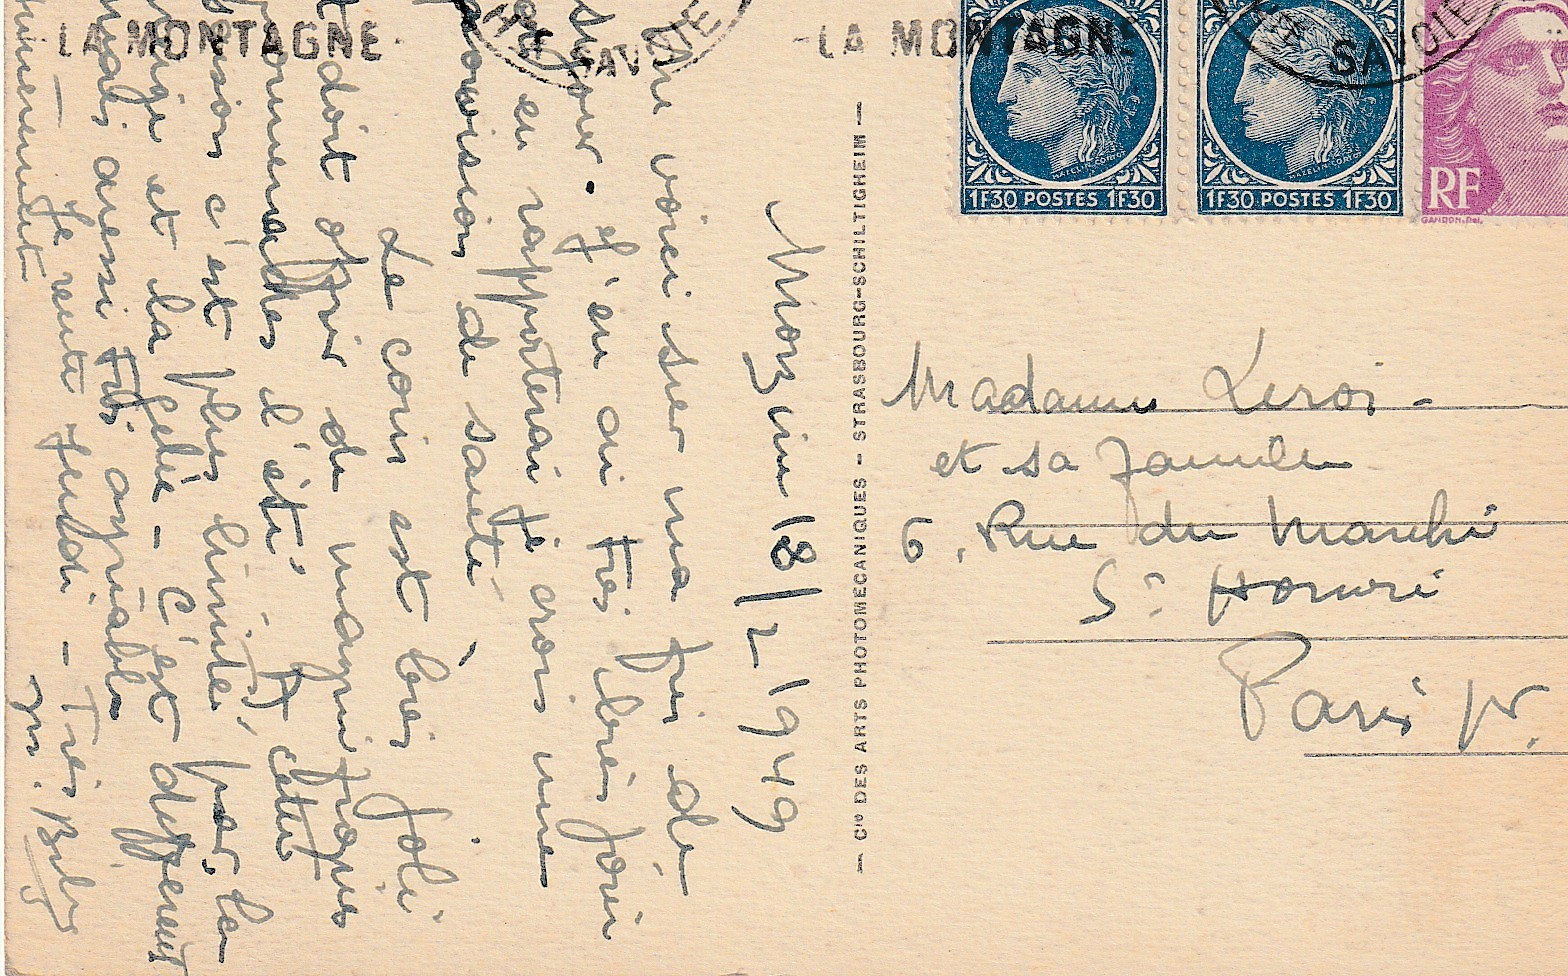 LA MONTAGNE
SAVOIE
LA MONTAGNE
SAVOIE
MAZELIN. CORTOT
1F30 POSTES 1F30
MAZELIN. CORTOT
1F30 POSTES 1F30
RF
GANDON. Del.
Morzine 18/2 1949
voici sur ma fin de
séjour. J'en ai très bien joui
en rapporterai je crois une
provision de santé.
Le coin est très joli
et doit offrir de magnifiques
promenades l'été. A cette
saison c'est plus limité par la
neige et la gelée - C'est différent
mais aussi très agréable
Je rentre jeudi - Très
— CIE DES ARTS PHOTOMECANIQUES - STRASBOURG-SCHILTIGHEIM —
Madame Leroi -
et sa famille
6, Rue du Marché
St Honoré
Paris 1er